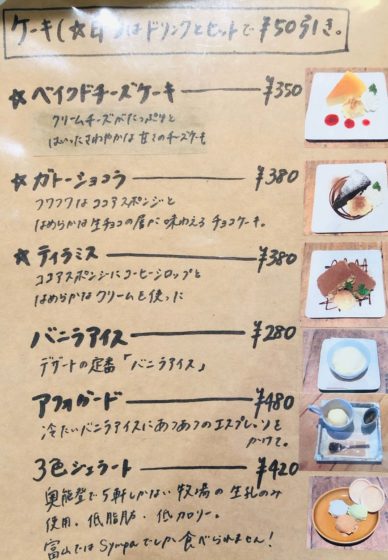 ケーキ(☆印)はドリンクとセットで¥50引き。
☆ベイクドチーズケーキ ¥350
クリームチーズがたっぷりと
はいったさわやかな甘さのチーズケーキ
☆ガトーショコラ ¥380
フワフワなココアスポンジと
なめらかな生チョコの層が味わえるチョコケーキ。
☆ティラミス ¥380
ココアスポンジにコーヒーシロップと
なめらかなクリームを使った
バニラアイス ¥280
デザートの定番「バニラアイス」
アフォガード ¥480
冷たいバニラアイスにあつあつのエスプレッソを
かけて。
3色ジェラート ¥420
奥能登で5軒しかない牧場の生乳のみ
使用。低脂肪、低カロリー。
富山ではSympaでしか食べられません!